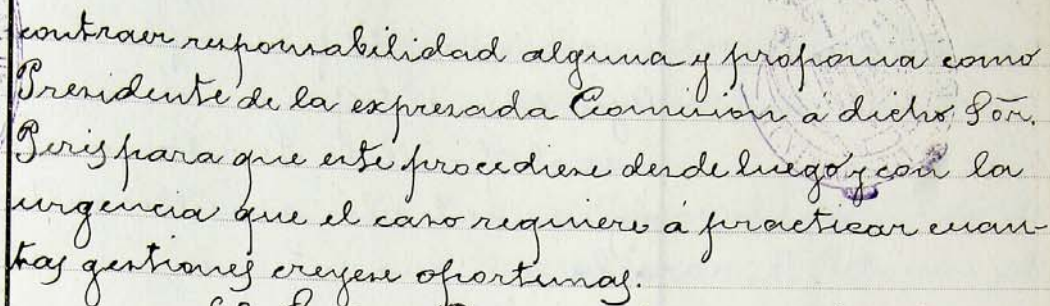 contraer responsabilidad alguna y proponia como
Presidente de la expresada Comision á dicho Sõr.
Peris para que este procediese desde luego y con la
urgencia que el caso requiere á practicar cuan-
tas gestiones creyese oportunas.